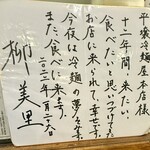 平壌冷麺屋本店様
十二年間、来たい、
食べたいと思いつづけてた
お店に来られて幸せです。
今夜は冷麺の夢をみて
また、食べに来ます。
二〇二三年二月二六日
柳美里